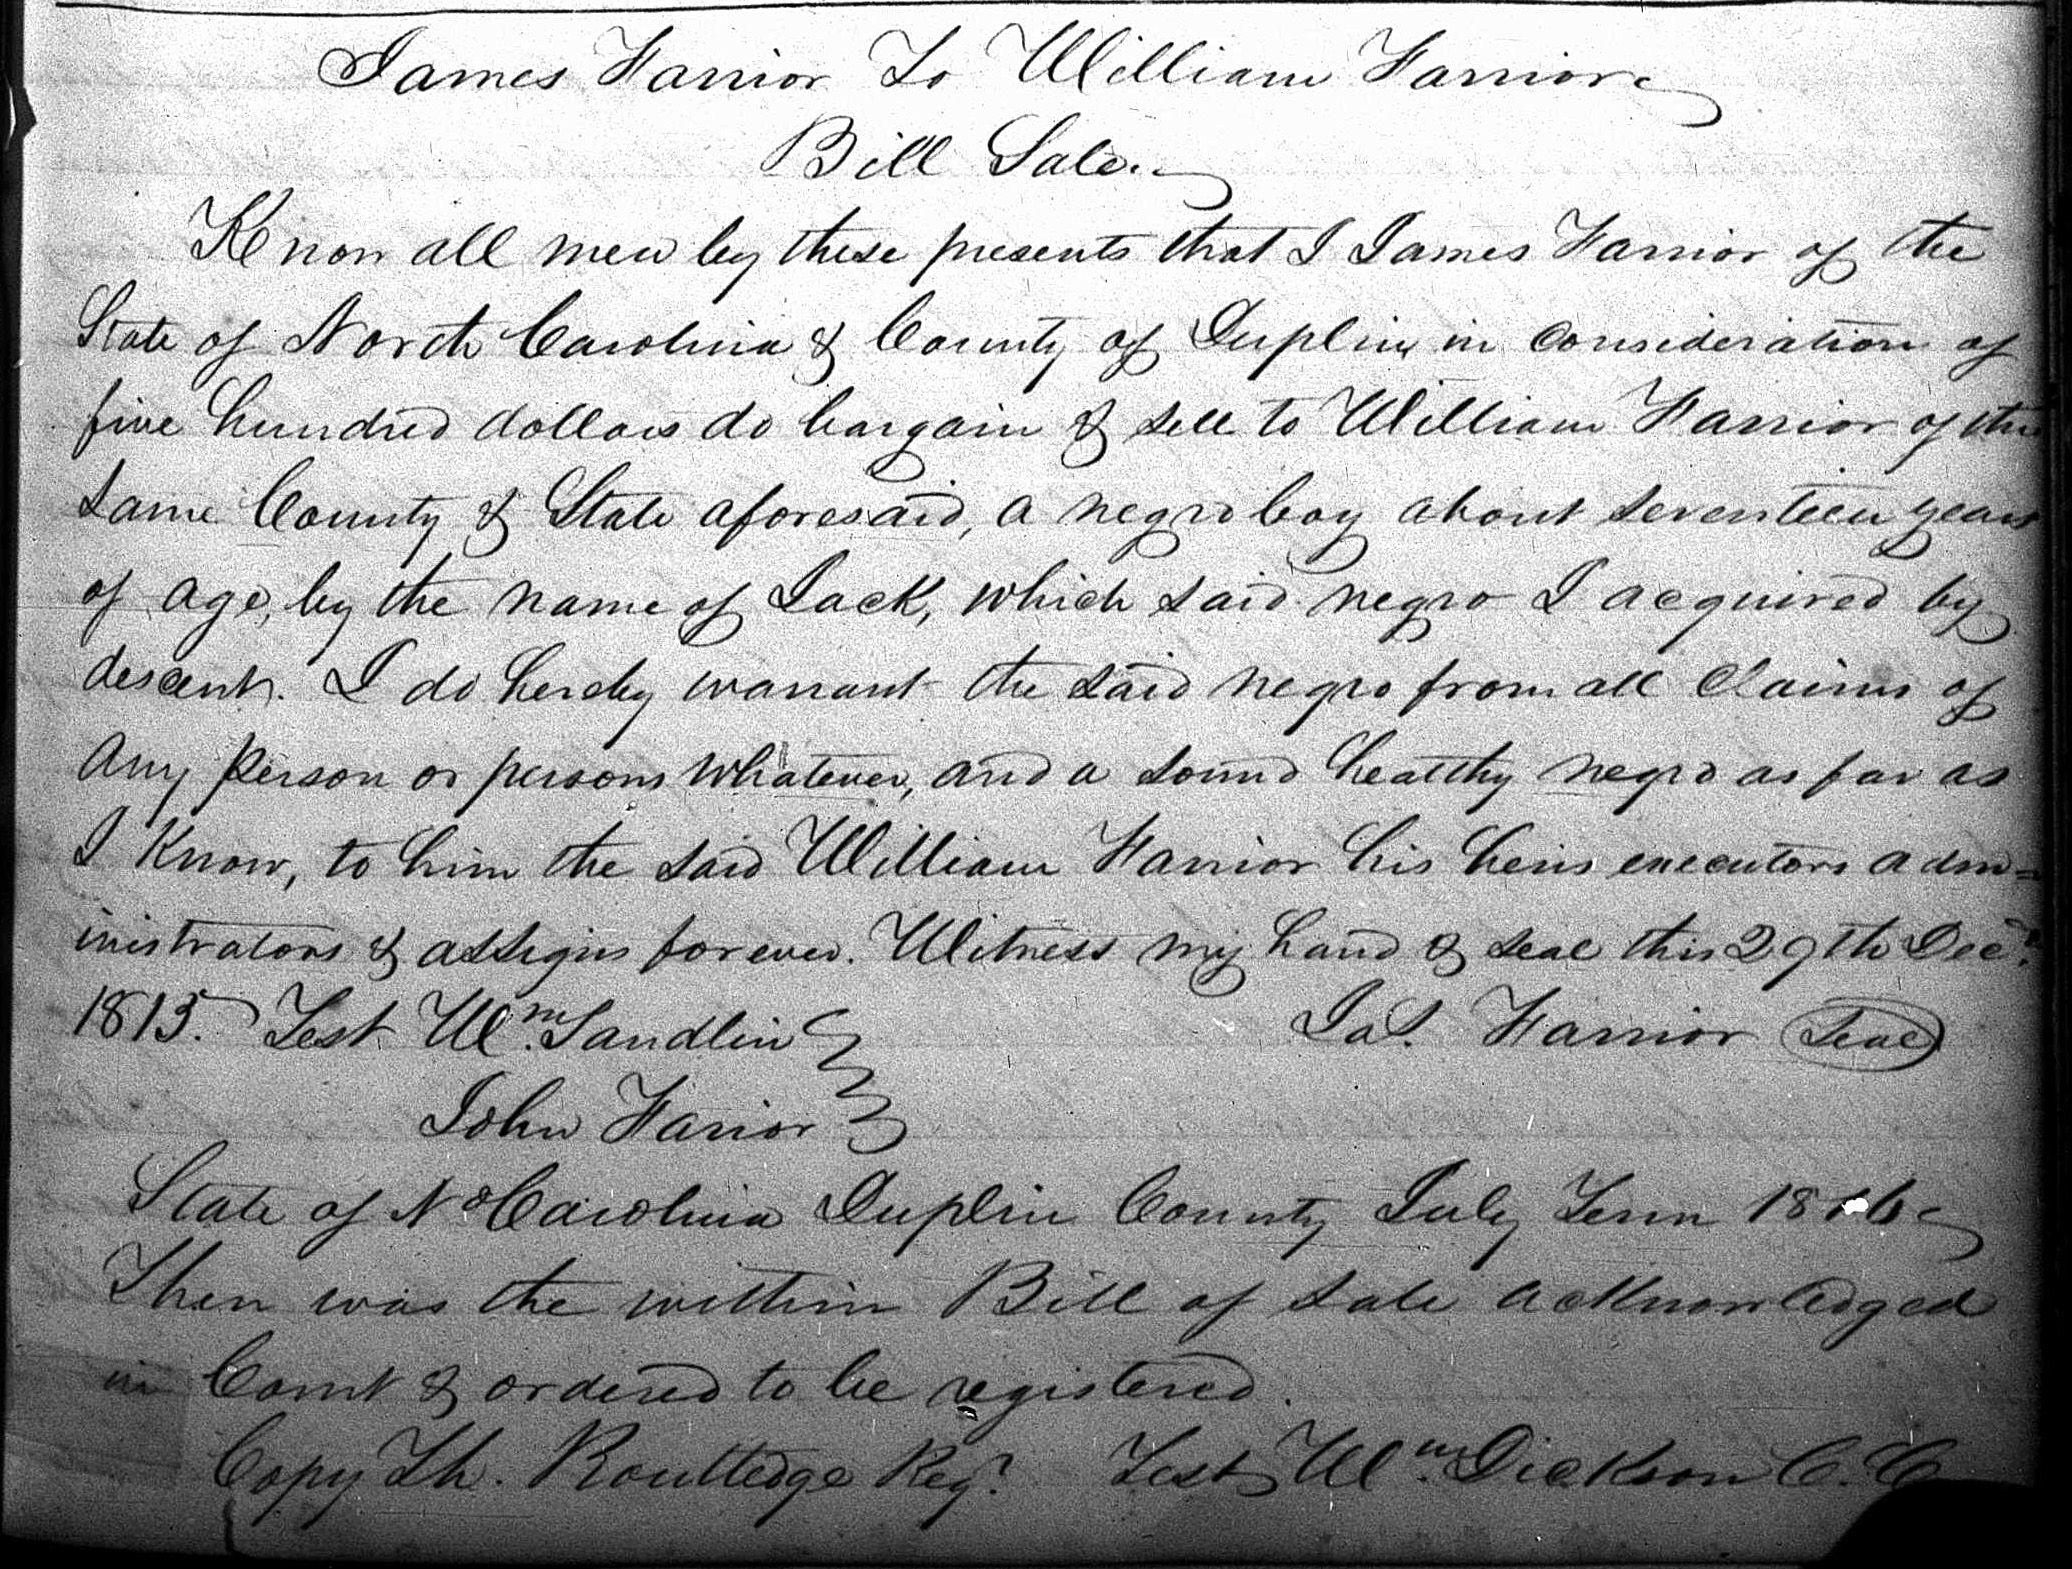 James Farrior To William Farrior
Bill Sale.
Know all men by these presents that I James Farrior of the
State of North Carolina & County of Duplin in consideration of
five hundred dollars do bargain & sell to William Farrior of the
same County & State aforesaid, a negro boy about seventeen years
of age, by the name of Jack, which said negro I acquired by
descent. I do hereby warrant the said negro from all claims of
any person or persons whatever, and a sound healthy negro as far as
I Know, to him the said William Farrior his heirs executors adm=
inistrators & assigns forever. Witness my hand & seal this 29th Decr.
1815. Test Wm. Sandlin Jas. Farrior Seal
John Farior
State of No Carolina Duplin County July Term 1816
Then was the within Bill of sale acknowledged
in Court & ordered to be registered.
Copy Th. Routledge Regr. Test Wm. Dickson C. C.